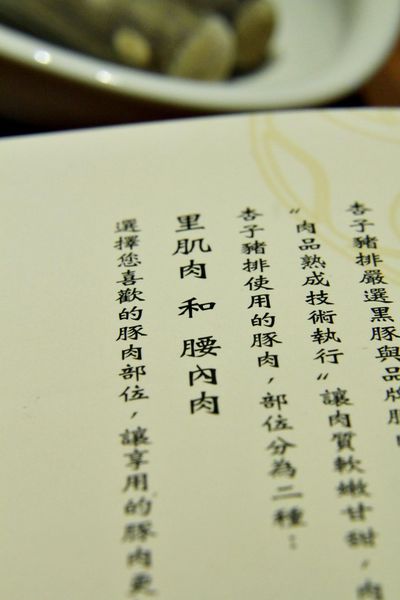 杏子豬排嚴選黑豚與品牌豚
“肉品熟成技術執行“讓肉質軟嫩甘甜，肉
杏子豬排使用的豚肉，部位分為二種：
里肌肉 和 腰內肉
選擇您喜歡的豚肉部位，讓享用的豚肉更